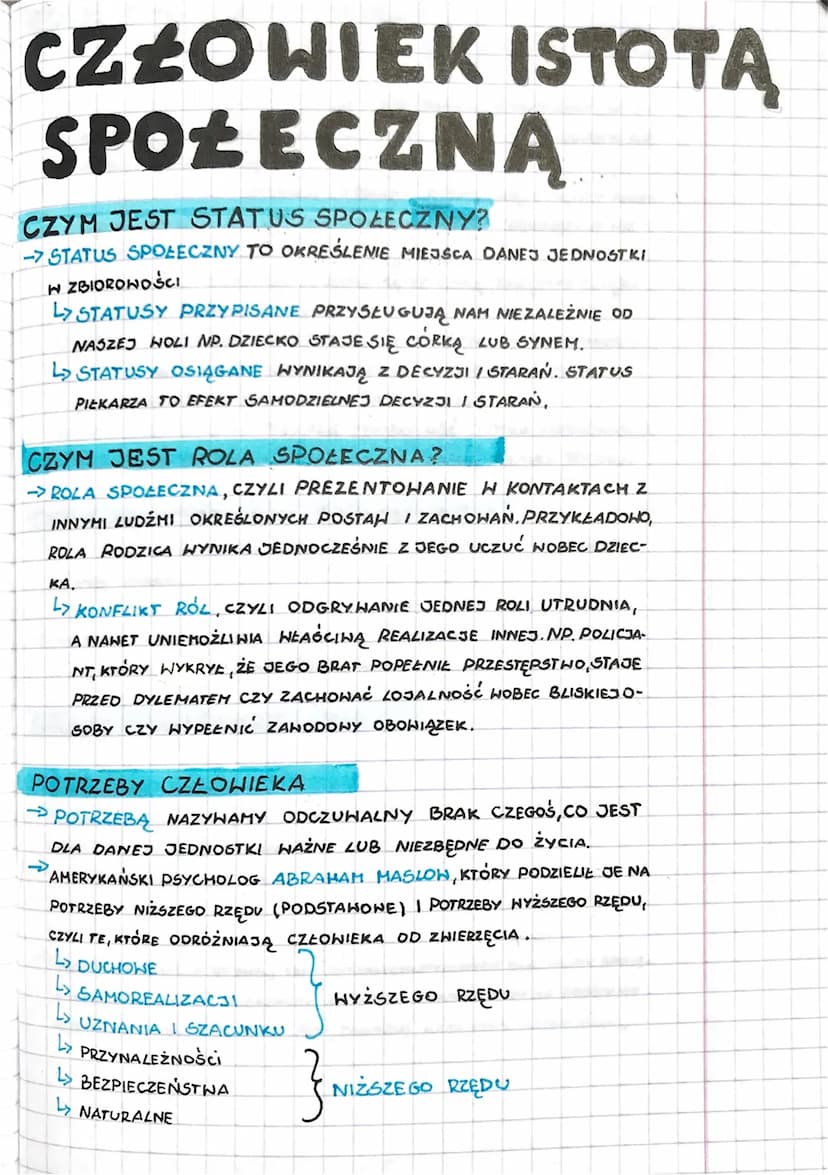 CZŁOWIEK ISTOTĄ
SPOŁECZNĄ
CZYM JEST STATUS SPOŁECZNY?
→ STATUS SPOŁECZNY TO OKREŚLENIE MIEJSCA DANEJ JEDNOSTKI
W ZBIOROWOŚCI
↳ STATUSY PRZYPISANE PRZYSŁUGUJĄ NAM NIEZALEŻNIE OD
NASZEJ WOLI NP. DZIECKO STAJE SIĘ CÓRKĄ LUB SYNEM.
↳ STATUSY OSIĄGANE WYNIKAJĄ Z DECYZJI I STARAŃ. STATUS
PIŁKARZA TO EFEKT SAMODZIELNEJ DECYZJI I STARAŃ,
CZYM JEST ROLA SPOŁECZNA?
→ ROLA SPOŁECZNA, CZYLI PREZENTOWANIE W KONTAKTACH Z
INNYMI LUDŹMI OKREŚLONYCH POSTAW I ZACHOWAŃ. PRZYKŁADOWO,
ROLA RODZICA WYNIKA JEDNOCZEŚNIE Z JEGO UCZUĆ WOBEC DZIEC-
KA.
↳ KONFLIKT RÓL, CZYLI ODGRYWANIE JEDNEJ ROLI UTRUDNIA,
A NAWET UNIEMOŻLIWIA WŁAŚCIWĄ REALIZACJE INNEJ. NP. POLICJA-
NT, KTÓRY WYKRYŁ, ŻE JEGO BRAT POPEŁNIŁ PRZESTĘPSTWO, STAJE
PRZED DYLEMATEM CZY ZACHOWAĆ LOJALNOŚĆ WOBEC BLISKIEJ O-
SOBY CZY WYPEŁNIĆ ZAWODOWY OBOWIĄZEK.
POTRZEBY CZŁOWIEKA
→ POTRZEBĄ NAZYWAMY ODCZUWALNY BRAK CZEGOŚ, CO JEST
DLA DANEJ JEDNOSTKI WAŻNE LUB NIEZBĘDNE DO ŻYCIA.
→ AMERYKAŃSKI PSYCHOLOG ABRAHAM MASLOW, KTÓRY PODZIELIŁ JE NA
POTRZEBY NIŻSZEGO RZĘDU (PODSTAWOWE) I POTRZEBY WYŻSZEGO RZĘDU,
CZYLI TE, KTÓRE ODRÓŻNIAJĄ CZŁOWIEKA OD ZWIERZĘCIA.
↳ DUCHOWE
↳ SAMOREALIZACJI } WYŻSZEGO RZĘDU
↳ UZNANIA I SZACUNKU
↳ PRZYNALEŻNOŚCI
↳ BEZPIECZEŃSTWA } NIŻSZEGO RZĘDU
↳ NATURALNE